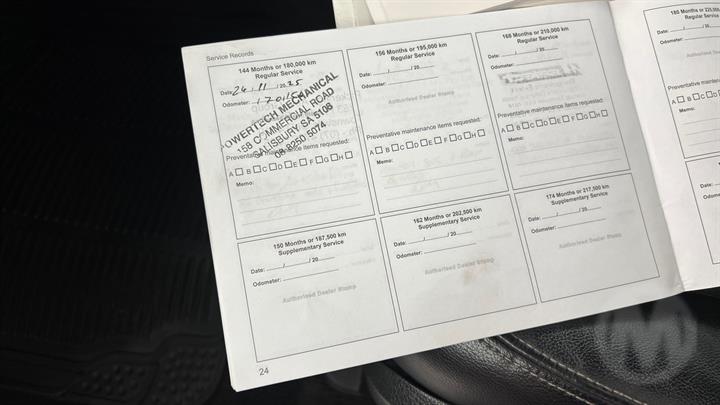 Service Records
144 Months or 180,000 km
Regular Service
Date: 24 / 11 / 2025
Odometer:
POWERTECH MECHANICAL
158 COMMERCIAL ROAD
SALISBURY SA 5108
08 8250 5074
Preventative maintenance items requested:
A B C D E F G H
Memo:
156 Months or 195,000 km
Regular Service
Date: / / 20
Odometer:
Authorised Dealer Stamp
Preventative maintenance items requested:
A B C D E F G H
Memo:
168 Months or 210,000 km
Regular Service
Date: / / 20
Odometer:
Preventative maintenance items requested:
A B C D E F G H
Memo:
150 Months or 187,500 km
Supplementary Service
Date: / / 20
Odometer:
Authorised Dealer Stamp
162 Months or 202,500 km
Supplementary Service
Date: / / 20
Odometer:
Authorised Dealer Stamp
174 Months or 217,500 km
Supplementary Service
Date: / / 20
Odometer:
Authorised Dealer Stamp
24
180 Months or
Regular
Date:
Odometer:
Preventative main
A B C D
Memo:
Date:
Odometer:
M